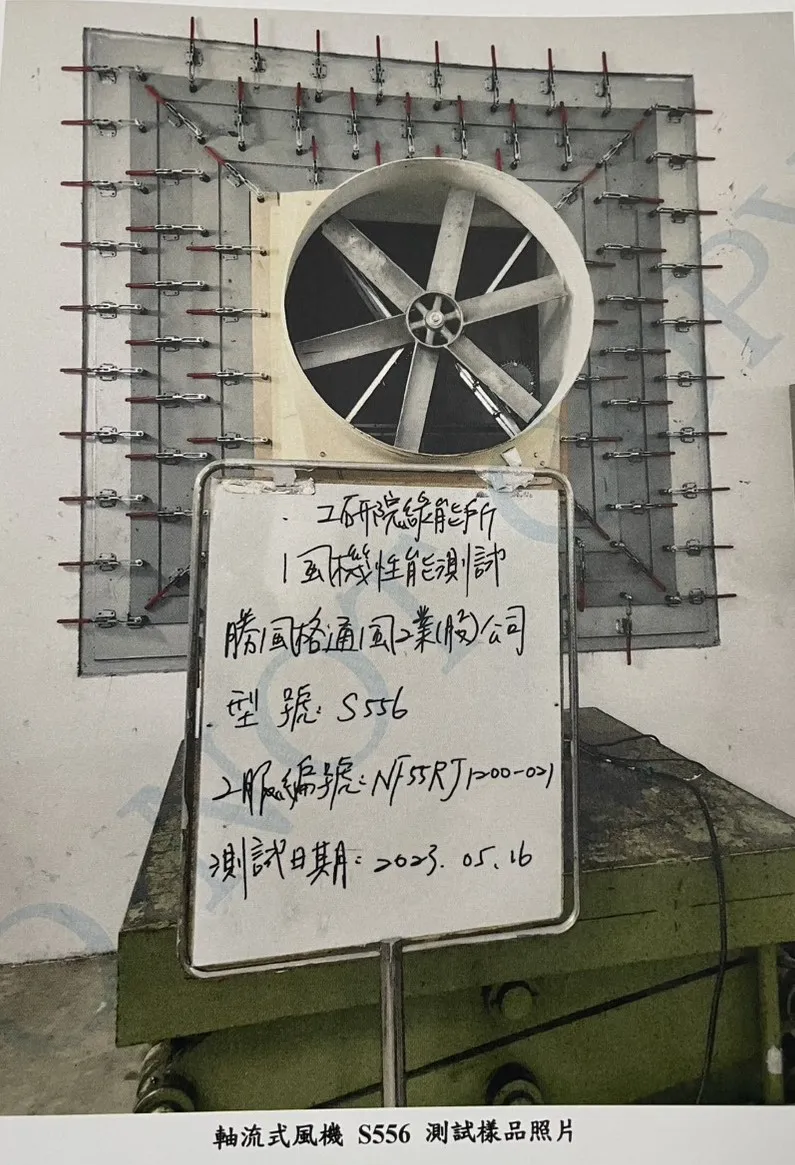 工研院綠能所
風機性能測試
勝風格通風工業(股)公司
型號: S556
工服編號: NF55RJ1200-021
測試日期: 2023.05.16
DO NOT COPY
軸流式風機 S556 測試樣品照片